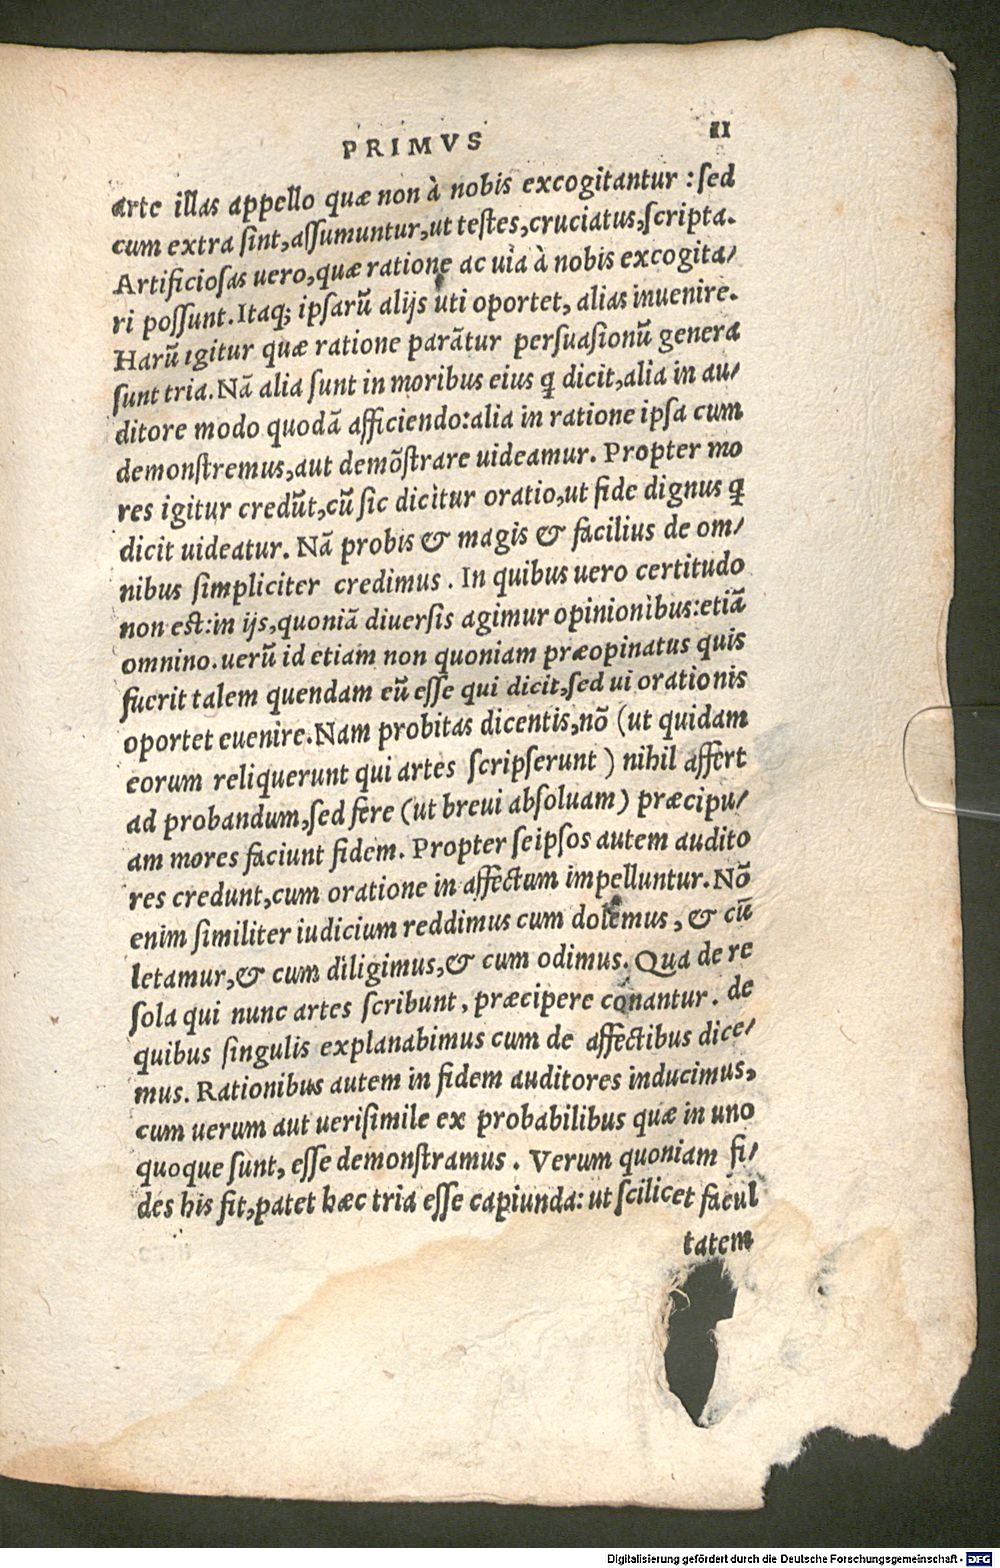 PRIMVS 11
arte illas appello quæ non à nobis excogitantur : sed
cum extra sint, assumuntur, ut testes, cruciatus, scripta.
Artificiosas uero, quæ ratione ac uia à nobis excogita/
ri possunt. Itaq; ipsarũ alijs uti oportet, alias inuenire.
Harũ igitur quæ ratione parãtur persuasionũ genera
sunt tria. Nã alia sunt in moribus eius q̃ dicit, alia in au/
ditore modo quodã afficiendo: alia in ratione ipsa cum
demonstremus, aut demõstrare uideamur. Propter mo
res igitur credũt, cũ sic dicitur oratio, ut fide dignus q̃
dicit uideatur. Nã probis & magis & facilius de om/
nibus simpliciter credimus. In quibus uero certitudo
non est: in ijs, quoniã diuersis agimur opinionibus: etiã
omnino. uerũ id etiam non quoniam præopinatus quis
fuerit talem quendam eũ esse qui dicit, sed ui orationis
oportet euenire. Nam probitas dicentis, nõ (ut quidam
eorum reliquerunt qui artes scripserunt) nihil affert
ad probandum, sed fere (ut breui absoluam) præcipu/
am mores faciunt fidem. Propter seipsos autem audito
res credunt, cum oratione in affectum impelluntur. Nõ
enim similiter iudicium reddimus cum dolemus, & cũ
letamur, & cum diligimus, & cum odimus. Qua de re
sola qui nunc artes scribunt, præcipere conantur. de
quibus singulis explanabimus cum de affectibus dice/
mus. Rationibus autem in fidem auditores inducimus,
cum uerum aut uerisimile ex probabilibus quæ in uno
quoque sunt, esse demonstramus. Verum quoniam fi/
des his fit, patet hæc tria esse capiunda: ut scilicet facul
tatem
Digitalisierung gefördert durch die Deutsche Forschungsgemeinschaft - DFG